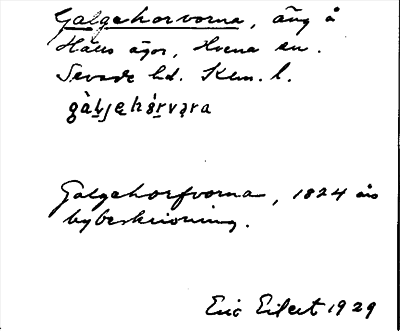 Galgehorvorna, äng å
Hälls ägor, Hvena sn.
Sevede hd. Klm. l.
gàḷjehórvạra
Galgehorfvorna, 1824 års
bybeskrivning.
Eric Eilert 1929